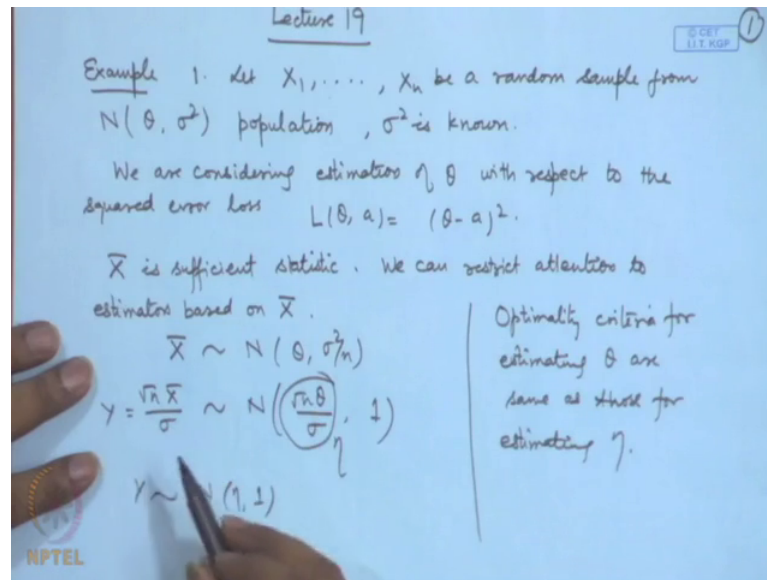 Lecture 19
© CET
I.I.T. KGP
1
Example 1. Let X₁, ...., Xₙ be a random sample from
N(θ, σ²) population, σ² is known.
We are considering estimation of θ with respect to the
squared error loss L(θ, a) = (θ - a)².
X̄ is sufficient statistic. We can restrict attention to
estimators based on X̄.
X̄ ~ N(θ, σ²/n)
Y = √n X̄/σ ~ N(√n θ/σ, 1)
η
Y ~ N(η, 1)
Optimality criteria for
estimating θ are
same as those for
estimating η.
NPTEL